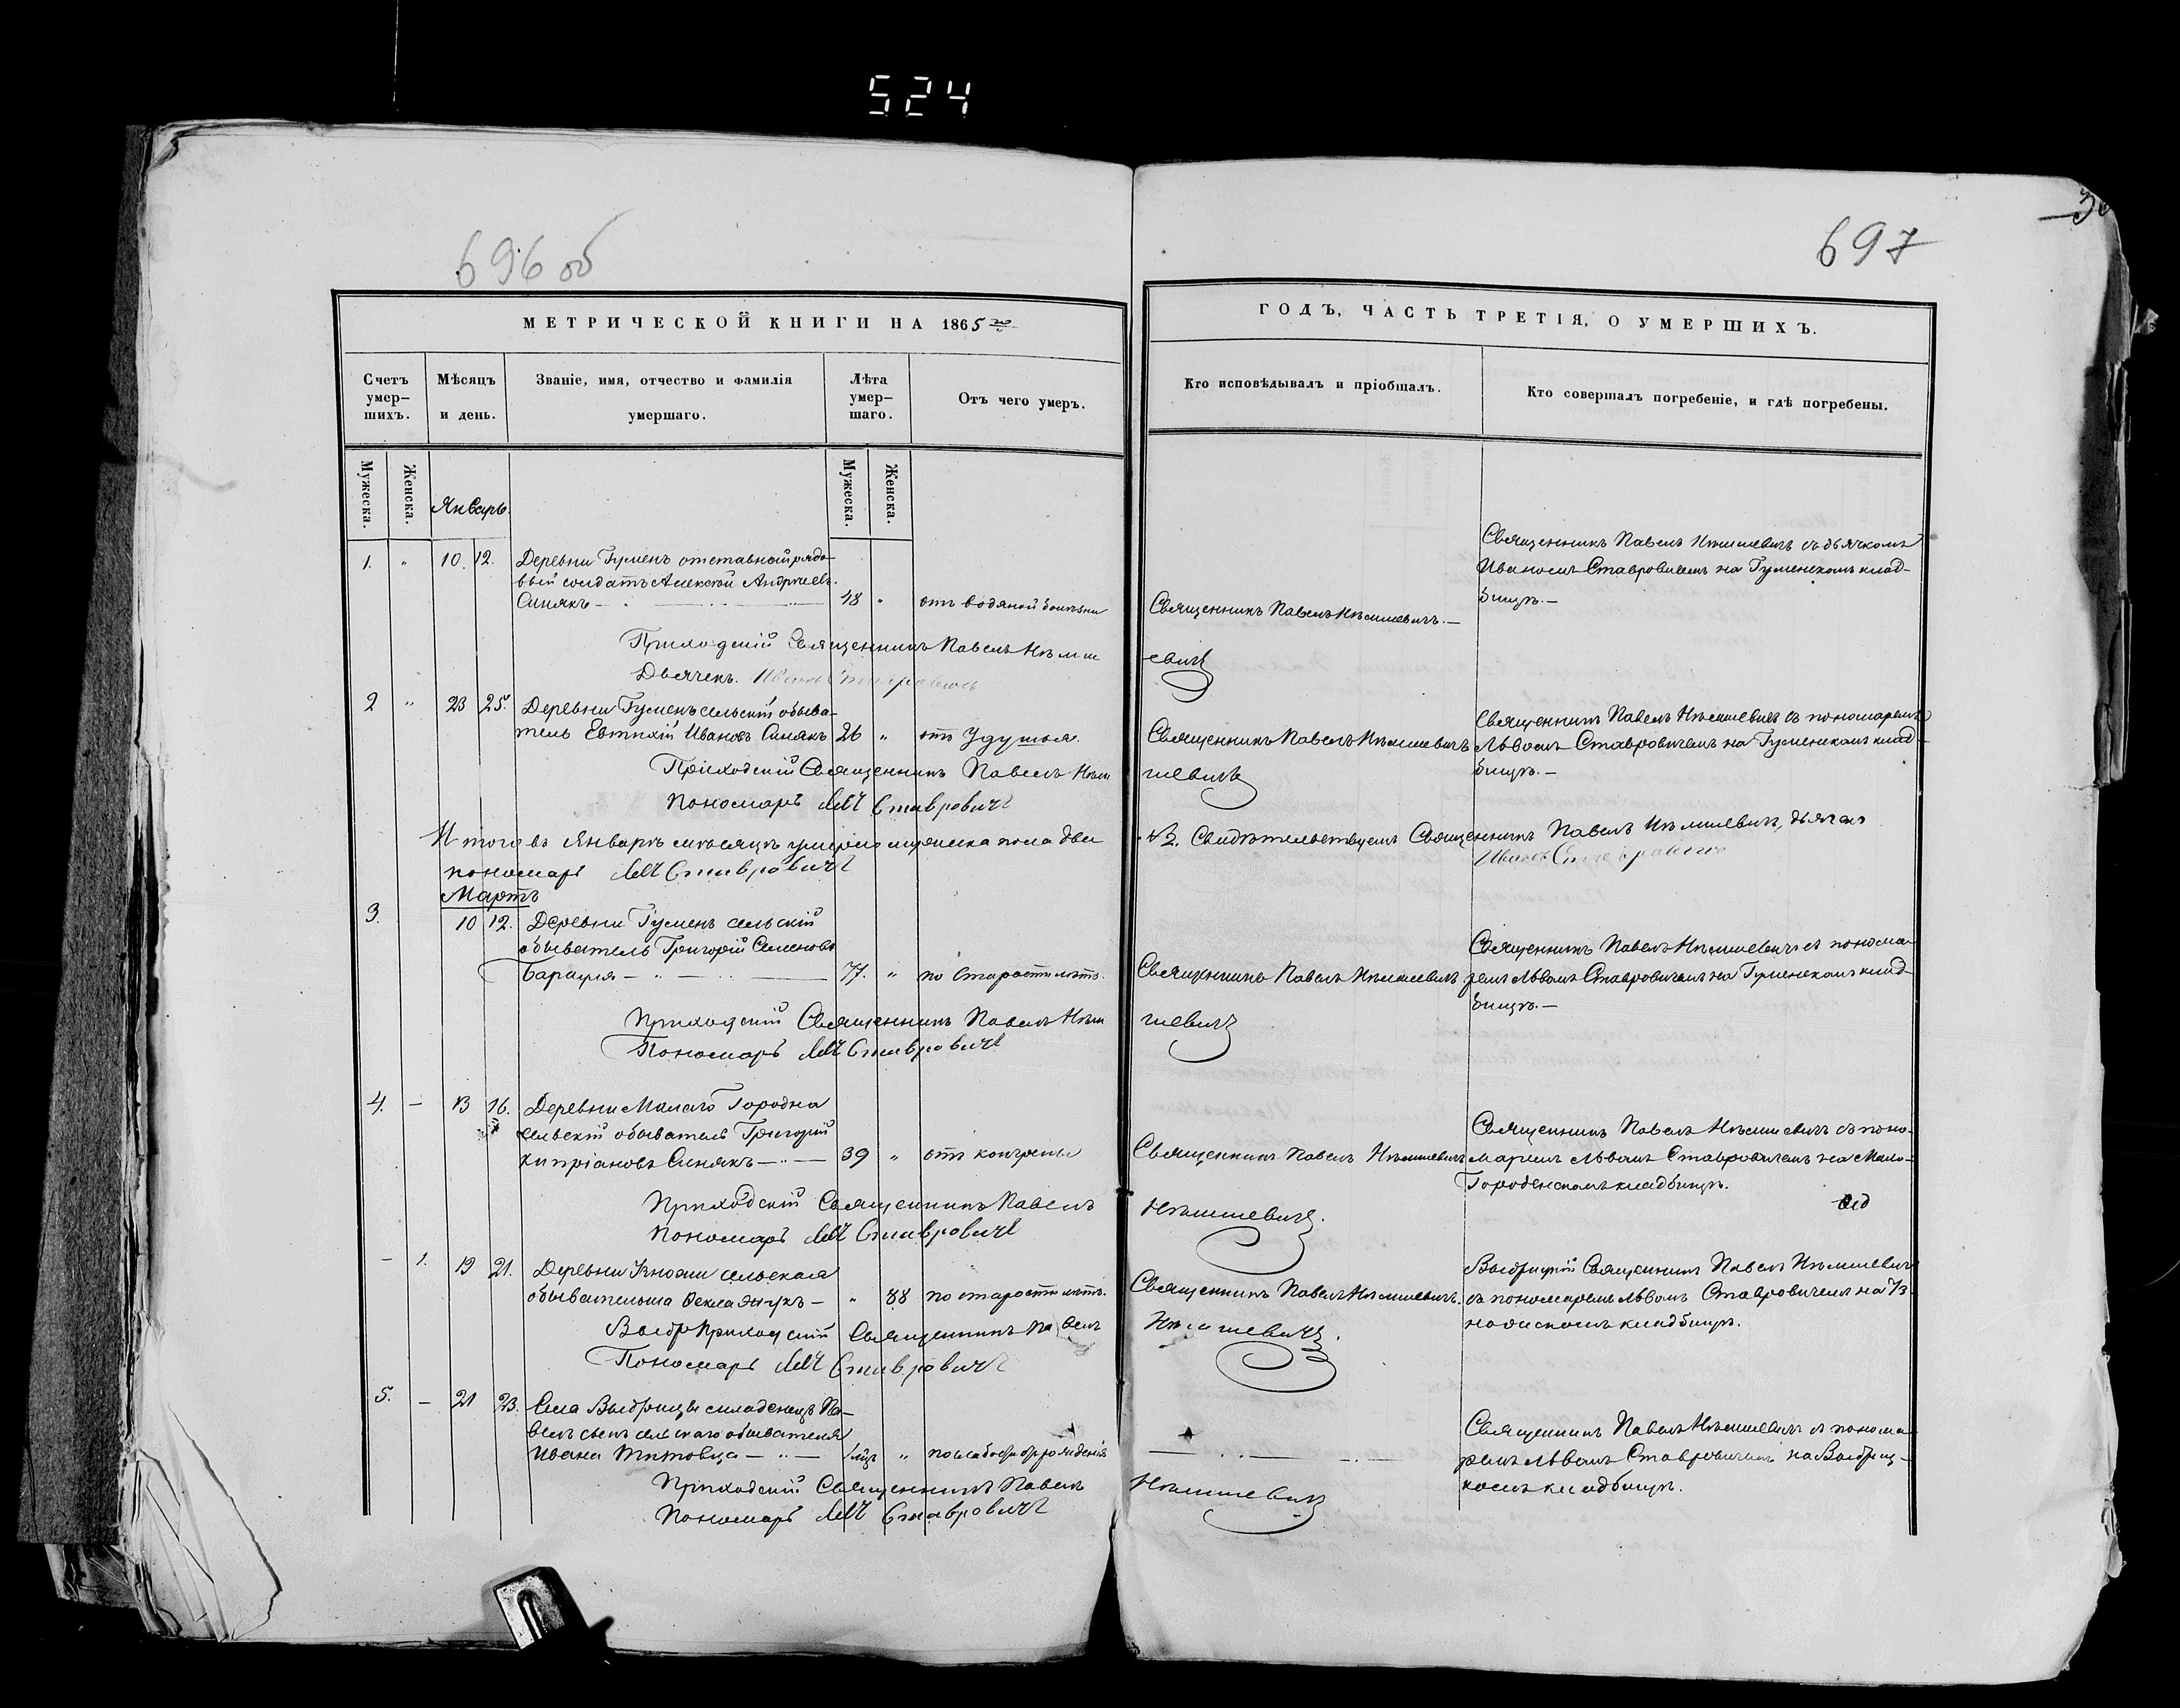 524
696 об
697
МЕТРИЧЕСКОЙ КНИГИ НА 1865 й
ГОДЪ, ЧАСТЬ ТРЕТІЯ, О УМЕРШИХЪ.
Счетъ умер-шихъ.
Мѣсяцъ и день.
Званіе, имя, отчество и фамилія умершаго.
Лѣта умер-шаго.
Отъ чего умеръ.
Кто исповѣдывалъ и пріобщалъ.
Кто совершалъ погребеніе, и гдѣ погребены.
Мужеска.
Женска.
Январь.
Мужеска.
Женска.
1. " 10. 12. Деревни Гуменъ отставной рядо-
вый солдатъ Алексѣй Андреевъ
Синякъ 48 " отъ водяной болѣзни
Священникъ Павелъ Нѣмшевичъ.
Священникъ Павелъ Нѣмшевичъ съ дьячкомъ
Иваномъ Ставровичемъ на Гуменскомъ клад-
бищѣ.
Приходскій Священникъ Павелъ Нѣмшевичъ
Дьячекъ Иванъ Ставровичъ
2 " 23 25. Деревни Гуменъ сельскій обыва-
тель Евтихій Ивановъ Синякъ 26 " отъ удушья.
Священникъ Павелъ Нѣмшевичъ
Священникъ Павелъ Нѣмшевичъ съ пономаремъ
Львомъ Ставровичемъ на Гуменскомъ клад-
бищѣ.
Приходскій Священникъ Павелъ Нѣмшевичъ
Пономарь Левъ Ставровичъ
Итого въ Январѣ мѣсяцѣ умерло мужеска пола два
2. Свидѣтельствуемъ Священникъ Павелъ Нѣмшевичъ, дьячекъ
Иванъ Ставровичъ
пономарь Левъ Ставровичъ
Мартъ
3. 10 12. Деревни Гуменъ сельскій
обыватель Григорій Семеновъ
77. " по старости лѣтъ.
Священникъ Павелъ Нѣмшевичъ
Священникъ Павелъ Нѣмшевичъ съ понома-
ремъ Львомъ Ставровичемъ на Гуменскомъ клад-
бищѣ.
Приходскій Священникъ Павелъ Нѣмшевичъ
Пономарь Левъ Ставровичъ
4. – 13 16. Деревни Малаго Городна
сельскій обыватель Григорій
Кипріановъ Синякъ 39 " отъ
Священникъ Павелъ Нѣмшевичъ
Священникъ Павелъ Нѣмшевичъ съ поно-
маремъ Львомъ Ставровичемъ на Мало-
Городенскомъ кладбищѣ.
Приходскій Священникъ Павелъ Нѣмшевичъ.
Пономарь Левъ Ставровичъ
– 1. 19 21. Деревни сельская
обывательша Ѳекла 88 по старости лѣтъ.
Священникъ Павелъ Нѣмшевичъ.
Священникъ Павелъ Нѣмшевичъ
съ пономаремъ Львомъ Ставровичемъ на
кладбищѣ.
Приходскій Священникъ Павелъ Нѣмшевичъ.
Пономарь Левъ Ставровичъ
5. – 21 23. Села младенецъ Па-
велъ сынъ сельскаго обывателя
Ивана Титовца "
Священникъ Павелъ Нѣмшевичъ съ понома-
ремъ Львомъ Ставровичемъ на
кладбищѣ.
Приходскій Священникъ Павелъ Нѣмшевичъ
Пономарь Левъ Ставровичъ